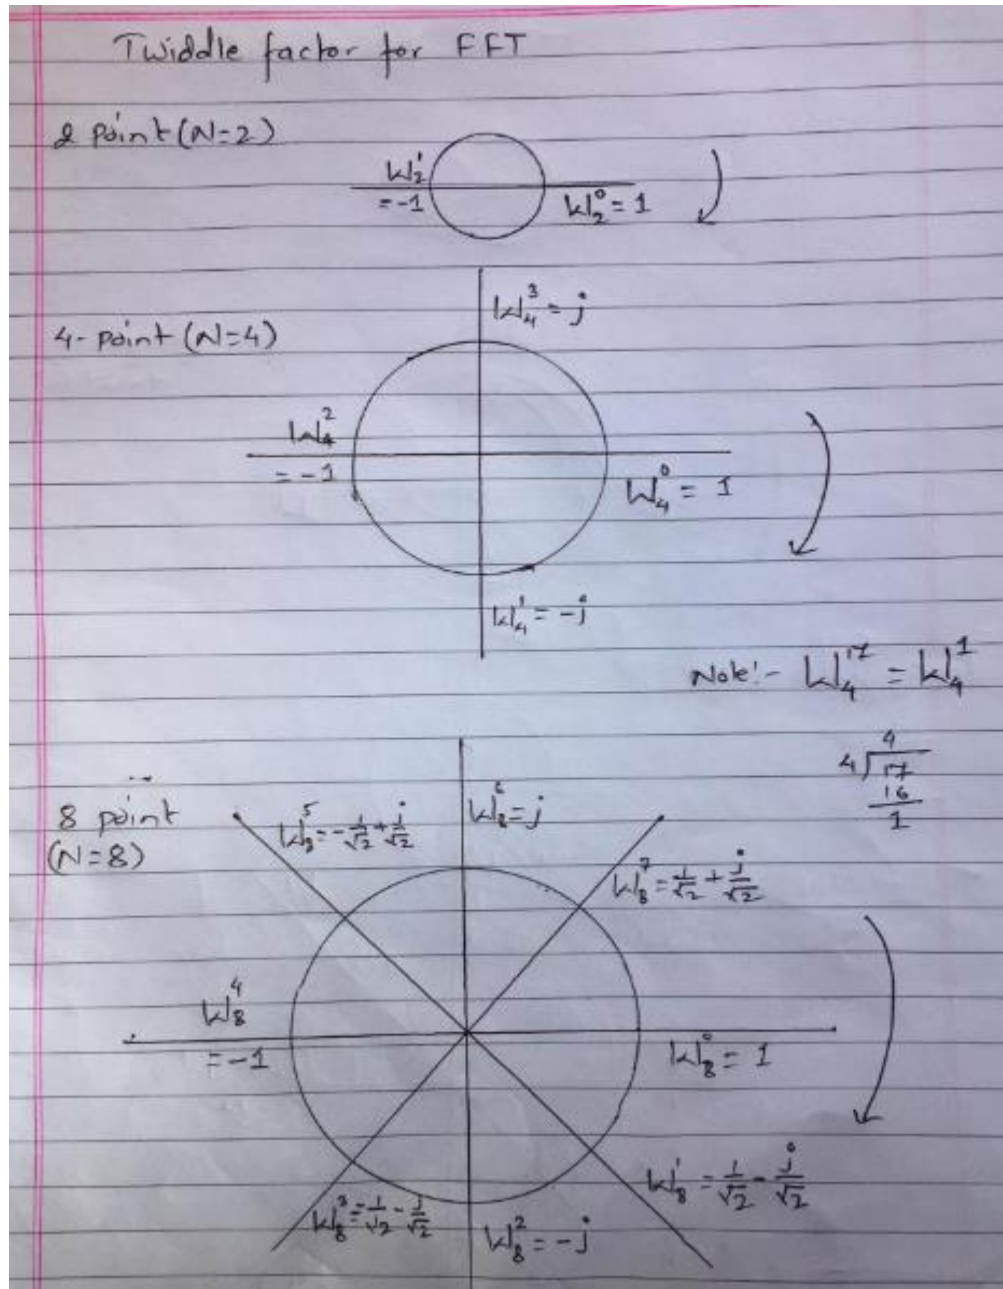 Twiddle factor for FFT
2 point (N=2)
W₂¹
= -1
W₂⁰ = 1
4-point (N=4)
W₄³ = j
W₄²
= -1
W₄⁰ = 1
W₄¹ = -j
Note:- W₄¹⁷ = W₄¹
4
4)17
16
1
8 point
(N=8)
W₈⁵ = -1/√2 + j/√2
W₈⁶ = j
W₈⁷ = 1/√2 + j/√2
W₈⁴
= -1
W₈⁰ = 1
W₈¹ = 1/√2 - j/√2
W₈³ = -1/√2 - j/√2
W₈² = -j